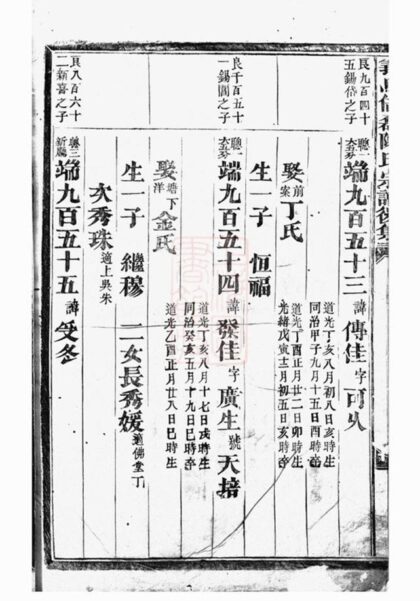 陳氏宗譜後集
良九百四十
五錫岱之子
聰一
端九百五十三 諱傳佳 字可久
道光丁亥八月初八日亥時生
同治甲子九月十五日酉時卒
娶前案丁氏
道光丁酉正月廿二日卯時生
光緒戊寅十二月初五日亥時卒
生一子 恒福
良千百五十
一錫閶之子
聰一
端九百五十四 諱發佳 字廣生 號天培
道光丁亥八月十七日戌時生
同治癸亥五月十九日巳時卒
娶塘下洋金氏
道光乙酉正月廿八日巳時生
生一子 繼穆 二女長秀媛適佛堂丁
次秀珠適上吳朱
良八百六十
二新喜之子
聰三新廳
端九百五十五 諱受冬